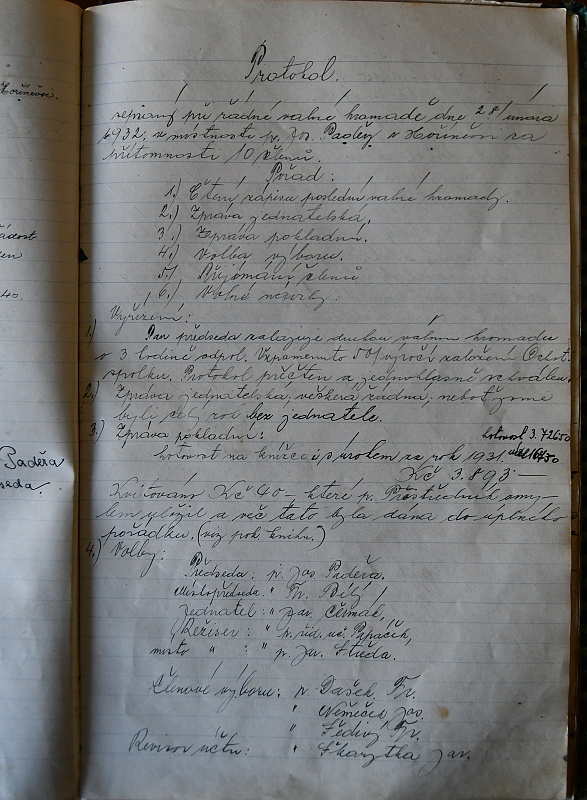 Hořiněvse.
Protokol.
sepsaný při řádné valné hromadě dne 28/ února
1932, v místnosti p. Jos. Paděry v Hořiněvsi za
přítomnosti 10 členů.
Pořad:
1.) Čtení zápisu poslední valné hromady.
2.) Zpráva jednatelská.
3.) Zpráva pokladní.
4.) Volba výboru.
5) Přijímání členů
6.) Volné návrhy:
Vyřízení:
1) Pan předseda zahajuje druhou valnou hromadu
o 3 hodině odpol. Vzpomenuto 50/výročí založení Ochot.
spolku. Protokol přečten a jednohlasně schválen.
2.) Zpráva jednatelská, veškerá žádná, neboť jsme
byli celý rok bez jednatele.
3.) Zpráva pokladní: hotovost 3.726.50
hotovost na knížce i s úrokem za rok 1931. 
Kč 3.893 -
Kvitováno Kč 40 - které p. Prostředník omy-
lem uložil a věc tato byla dána do úplného
pořádku. (viz pok. knihu.)
4.) Volby:
Předseda: p. Jos. Paděra.
Místopředseda: " Fr. Bílý
Jednatel: " Jar. Čermák,
Režiser: " p. říd. uč. Papáček,
místo " : " p. Jar. Středa.
Členové výboru: p. Dašek Fr.
" Němeček Jos.
" Šedivý Fr.
Revisor účtu: " Jar.
žádost
40.
Paděra
seda.